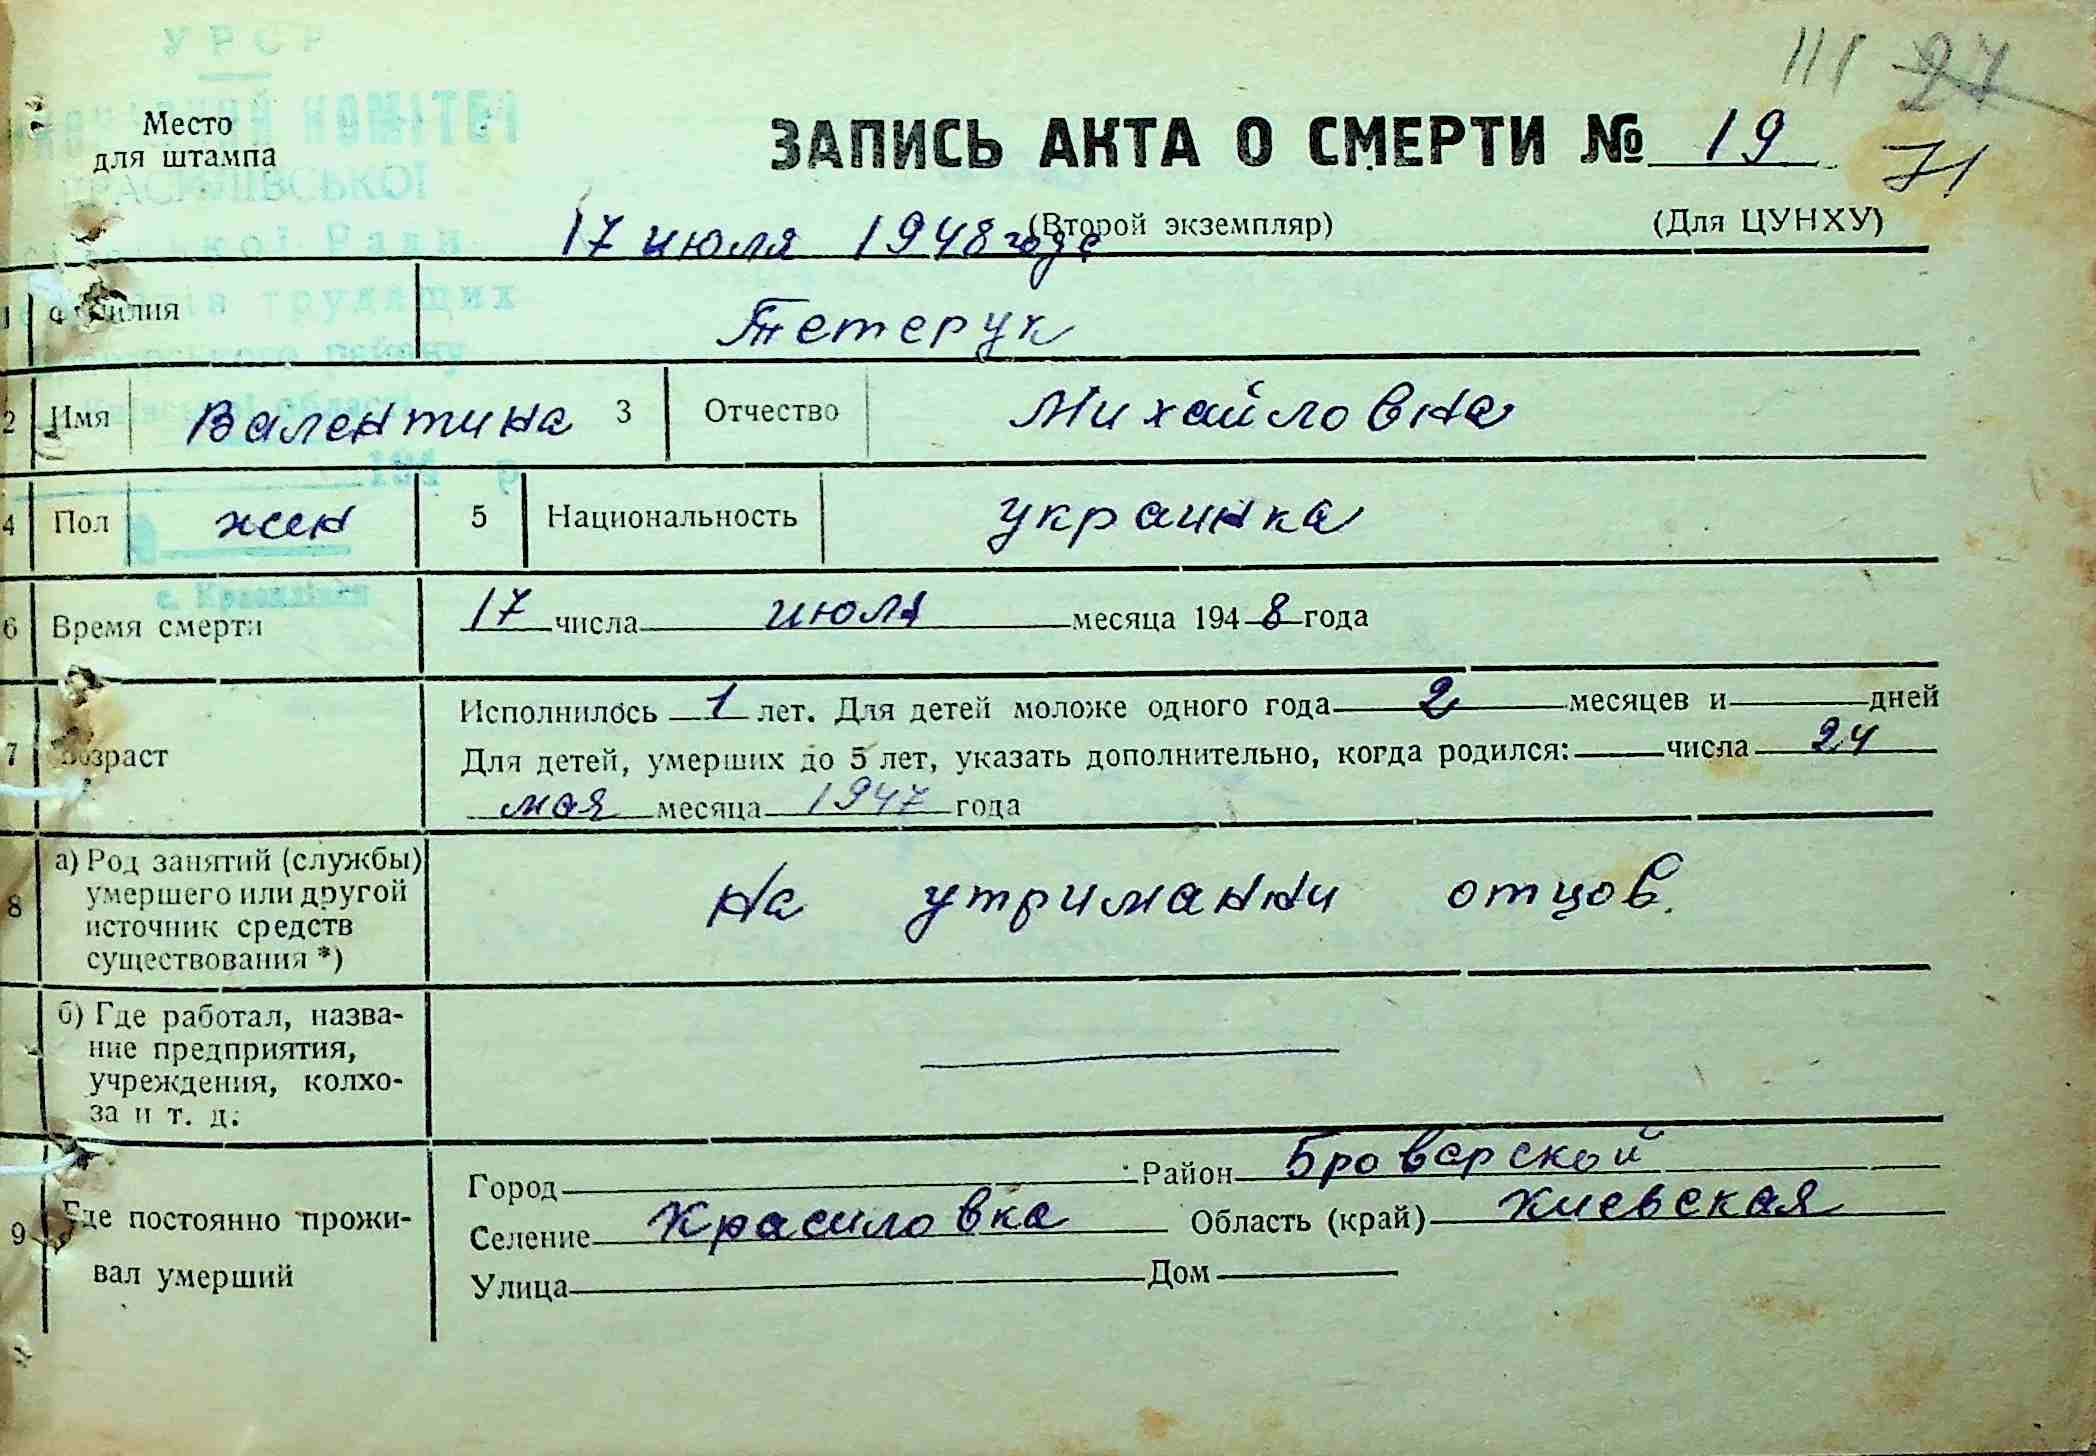 УРСР
КОМІТЕТ
КРАСИЛІВСЬКОЇ
Ради
трудящих
району
області
194 р
с. Красилівка
Место
для штампа
111 27
ЗАПИСЬ АКТА О СМЕРТИ № 19
71
17 июля 1948 года (Второй экземпляр) (Для ЦУНХУ)
1 Фамилия Тетерук
2 Имя Валентина 3 Отчество Михайловна
4 Пол жен 5 Национальность украинка
6 Время смерти 17 числа июля месяца 1948 года
7 Возраст
Исполнилось 1 лет. Для детей моложе одного года 2 месяцев и дней
Для детей, умерших до 5 лет, указать дополнительно, когда родился: числа 24
мая месяца 1947 года
8 а) Род занятий (службы)
умершего или другой
источник средств
существования *)
на утримании отцов.
б) Где работал, назва-
ние предприятия,
учреждения, колхо-
за и т. д.
9 Где постоянно прожи-
вал умерший
Город Район Броварской
Селение Красиловка Область (край) Киевская
Улица Дом